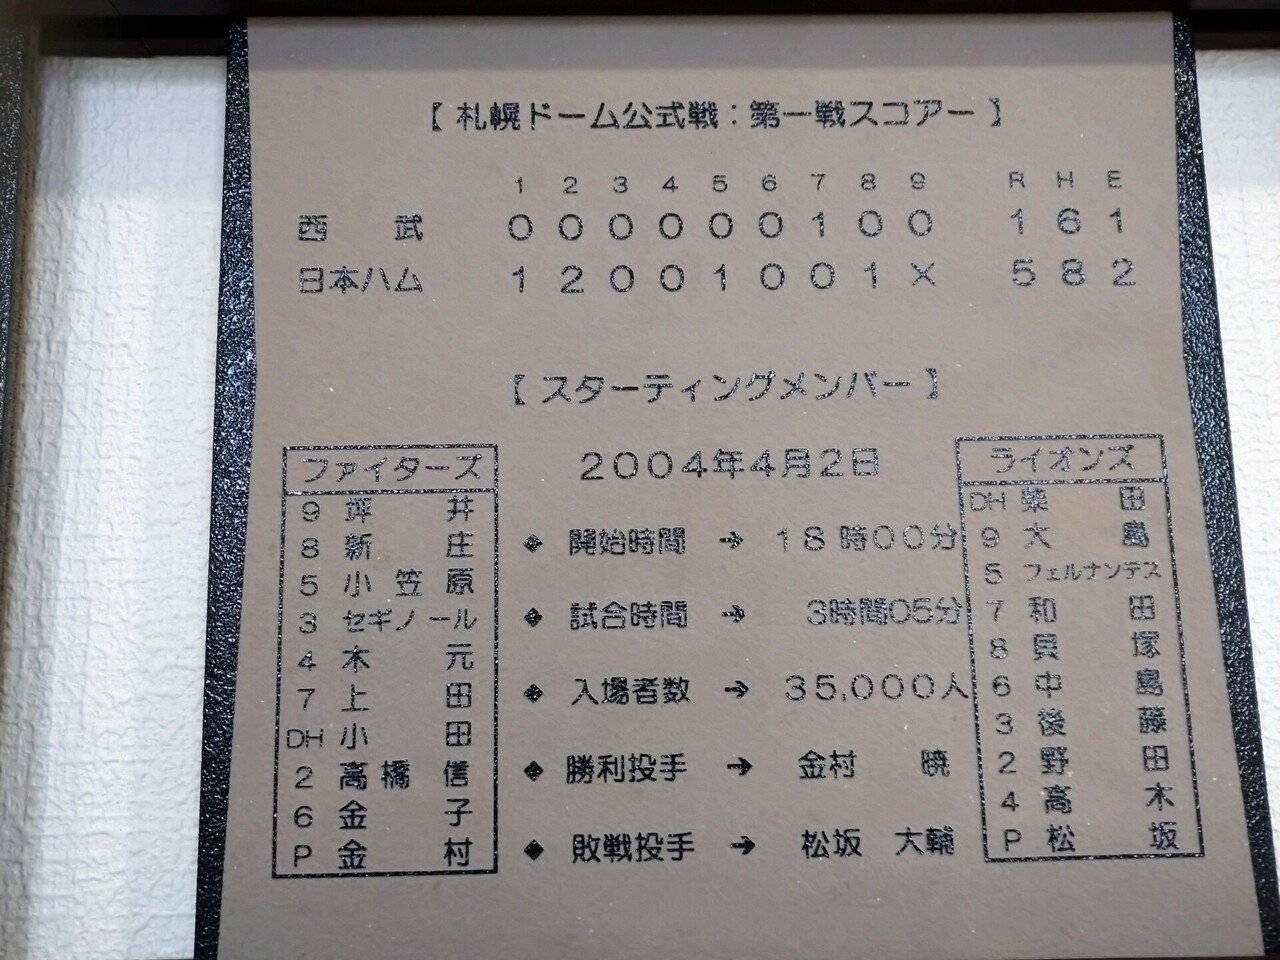 【 札幌ドーム公式戦：第一戦スコアー 】
1 2 3 4 5 6 7 8 9 R H E
西　武 0 0 0 0 0 0 1 0 0 1 6 1
日本ハム 1 2 0 0 1 0 0 1 × 5 8 2
【 スターティングメンバー 】
2004年4月2日
ファイターズ
9 坪　井
8 新　庄
5 小 笠 原
3 セギノール
4 木　元
7 上　田
DH 小　田
2 高 橋 信
6 金　子
P 金　村
◆ 開始時間 → 18時00分
◆ 試合時間 → 3時間05分
◆ 入場者数 → 35,000人
◆ 勝利投手 → 金村　暁
◆ 敗戦投手 → 松坂　大輔
ライオンズ
DH 柴　田
9 大　島
5 フェルナンデス
7 和　田
8 貝　塚
6 中　島
3 後　藤
2 野　田
4 高　木
P 松　坂